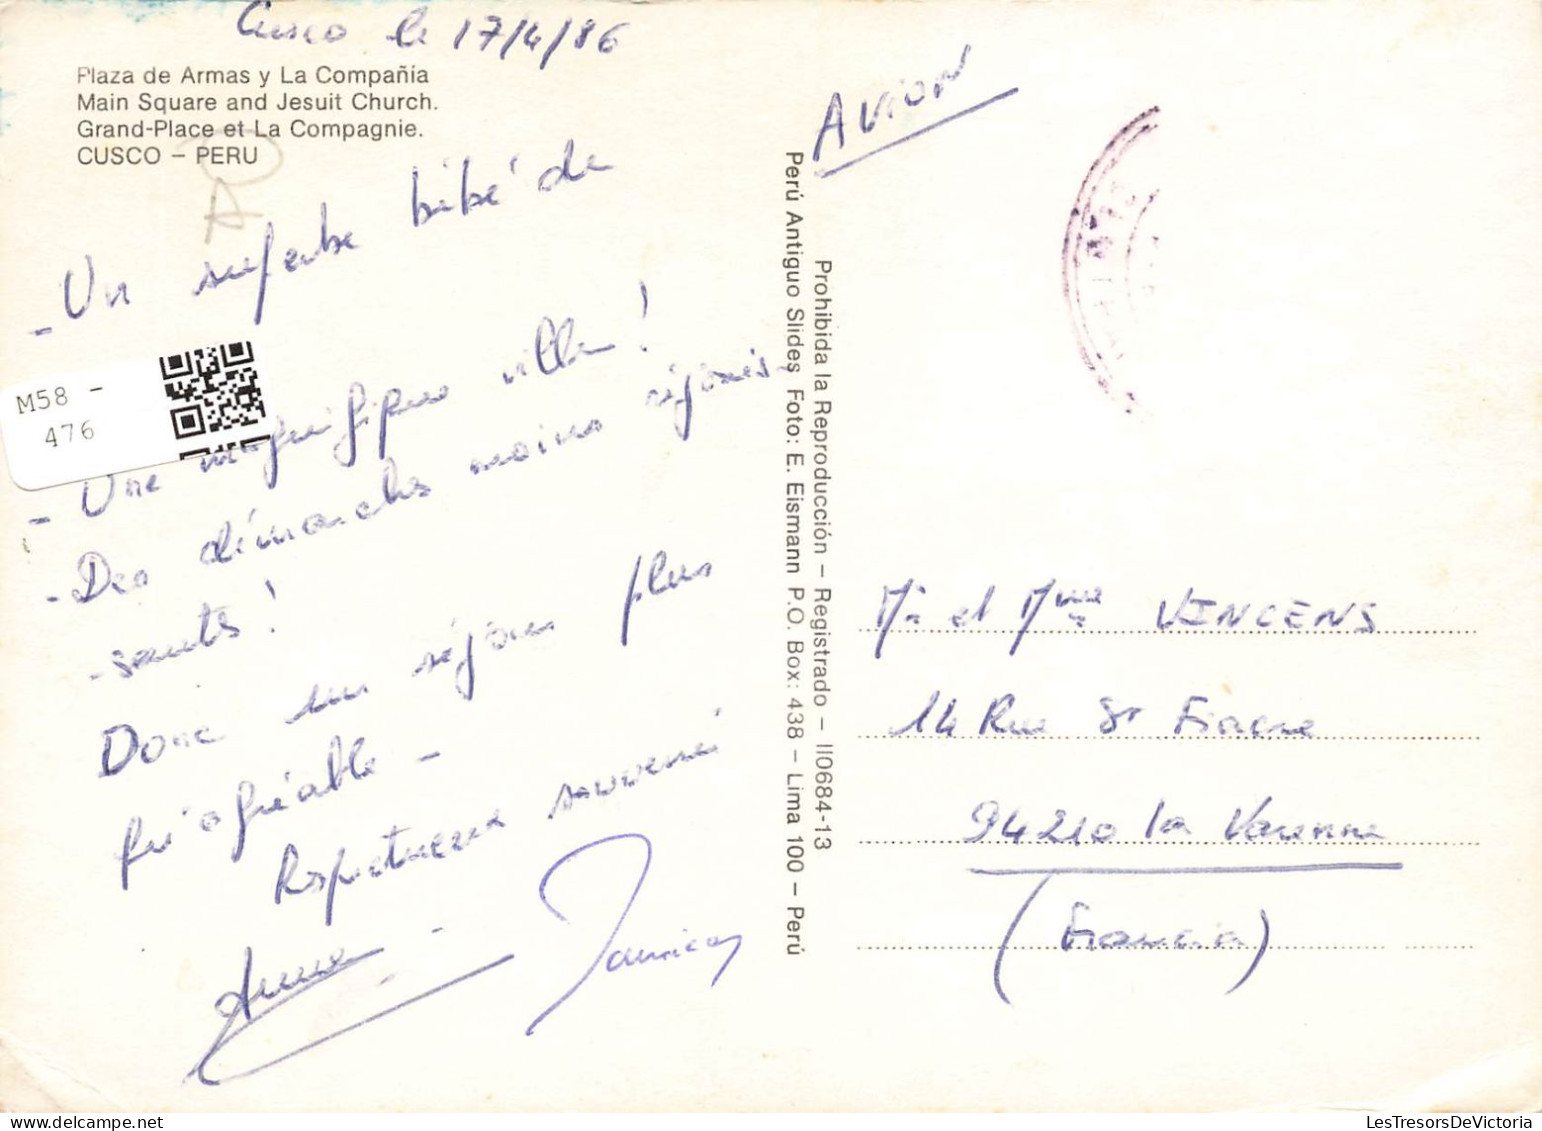 Cusco le 17/4/86
Plaza de Armas y La Compañía
Main Square and Jesuit Church.
Grand-Place et La Compagnie.
CUSCO – PERU
- Un superbe bébé de
M58 -
476
- Une magnifique ville !
- Des dimanches moins réjouis-
-sants !
Donc un séjour plus
qu'agréable -
Respectueux souvenir
Anne
AVION
Perú Antiguo Slides Foto: E. Eismann P.O. Box: 438 – Lima 100 – Perú
Prohibida la Reproducción – Registrado – II0684-13
Mr et Mme VINCENS
14 Rue St Fiacre
94210 la Varenne
(Francia)
LesTresorsDeVictoria